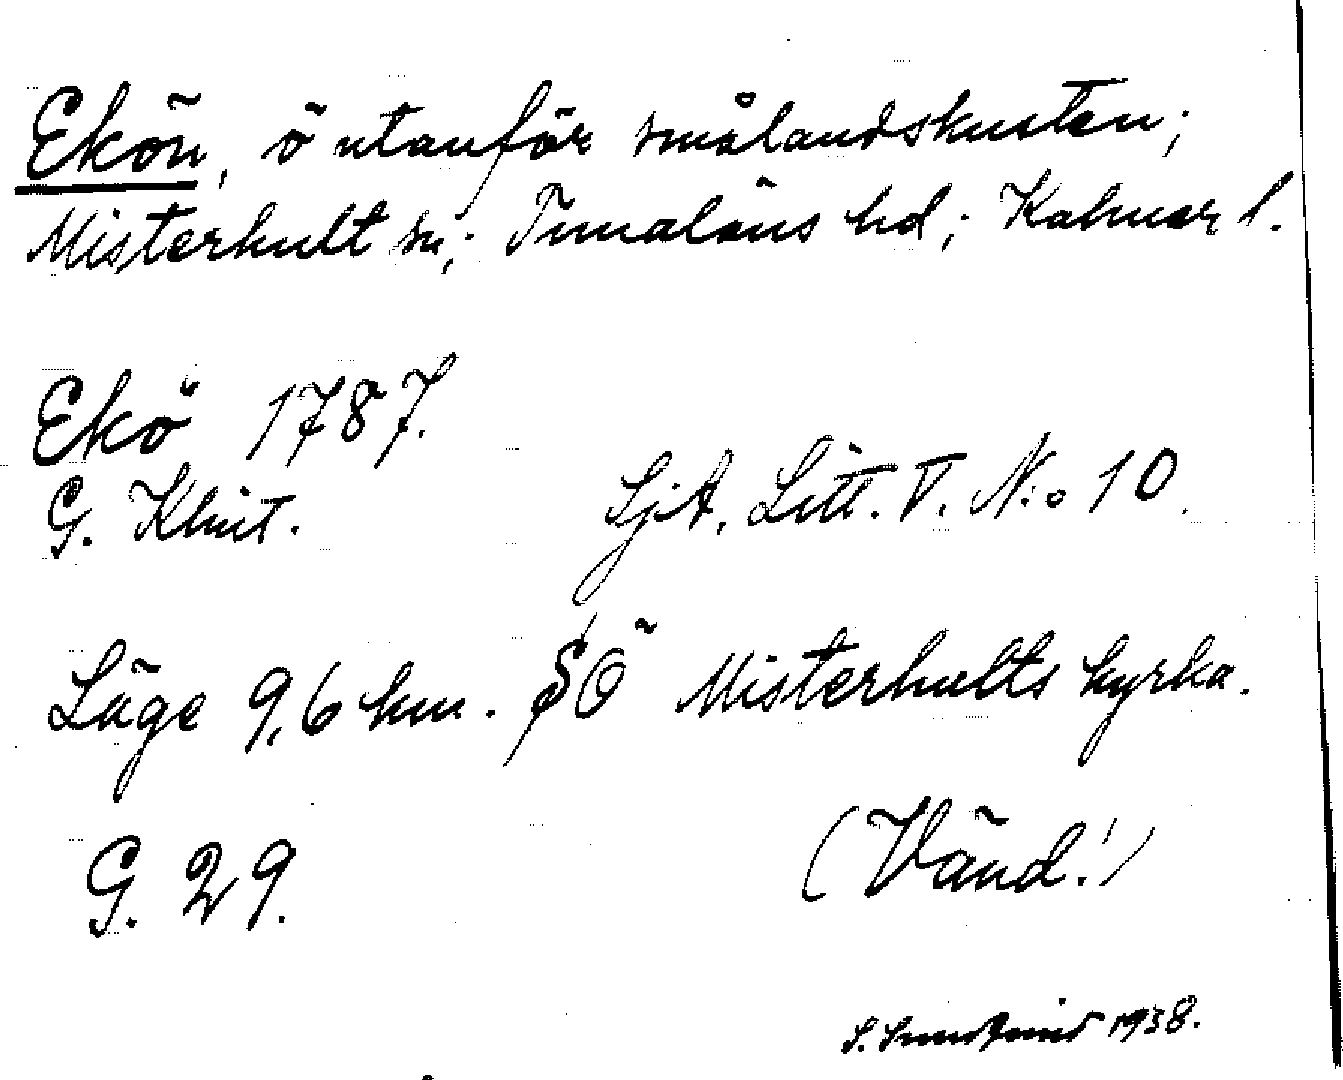 Ekön, ö utanför smålandskusten;
Misterhult sn; Tunaläns hd; Kalmar l.
Ekö 1787.
G. Klint.
SjA, Litt. V. N:o 10.
Läge 9,6 km. SÖ Misterhults kyrka.
G. 29.
(Vänd!)
S. 1938.